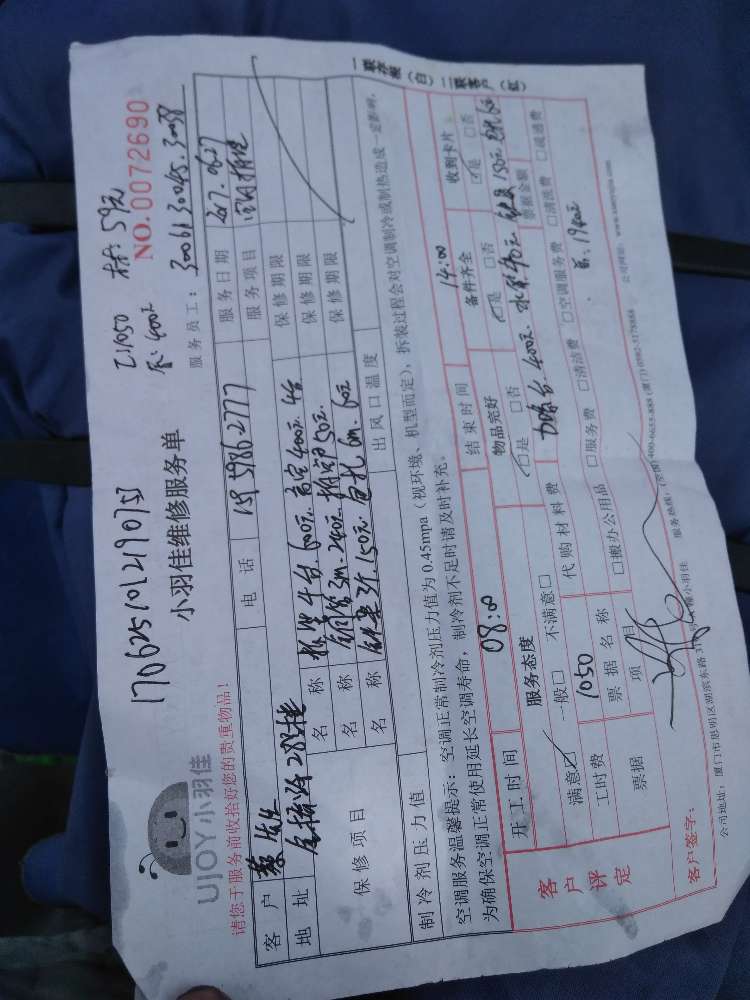 170625101219075
工1050 材:59元
泵:400元
UJOY小羽佳
小羽佳维修服务单
NO.0072690
请您于服务前收拾好您的贵重物品!
服务员工:30061 30045.30058
客户 蔡先生 电话 服务日期 2017.0627
地址 28楼 服务项目 空调拆装
保修项目 名称 拆装4台.600元 高空400元 保修期限
名称 铜管3m-240元 50元 保修期限
名称 铁架 150元 包扎6m.60元 保修期限
制冷剂压力值 出风口温度
空调服务温馨提示:空调正常制冷剂压力值为0.45mpa(视环境、机型而定),拆装过程会对空调制冷或制热造成一定影响,
为确保空调正常使用延长空调寿命,制冷剂不足时请及时补充。
开工时间 08:00 结束时间 14:00
客户评定 服务态度 物品完好 备件齐全 收到卡片
满意☑ 一般□ 不满意□ ☑是 □否 ☑是 □否 ☑是 □否
工时费 1050 代购材料费 400元 水泵 90元 150元 票据金额
票据名称 □服务费 □清洁费 □空调服务费 □清洗费 □疏通费
票据项目 □搬办公用品 1940元
客户签字:
公司地址:厦门市思明区湖滨东路 小羽佳 服务热线:(全国)400-6633-888 (厦门)0592-3178888 公司网址:www.xmyujia.com
一联存根(白)二联客户(红)